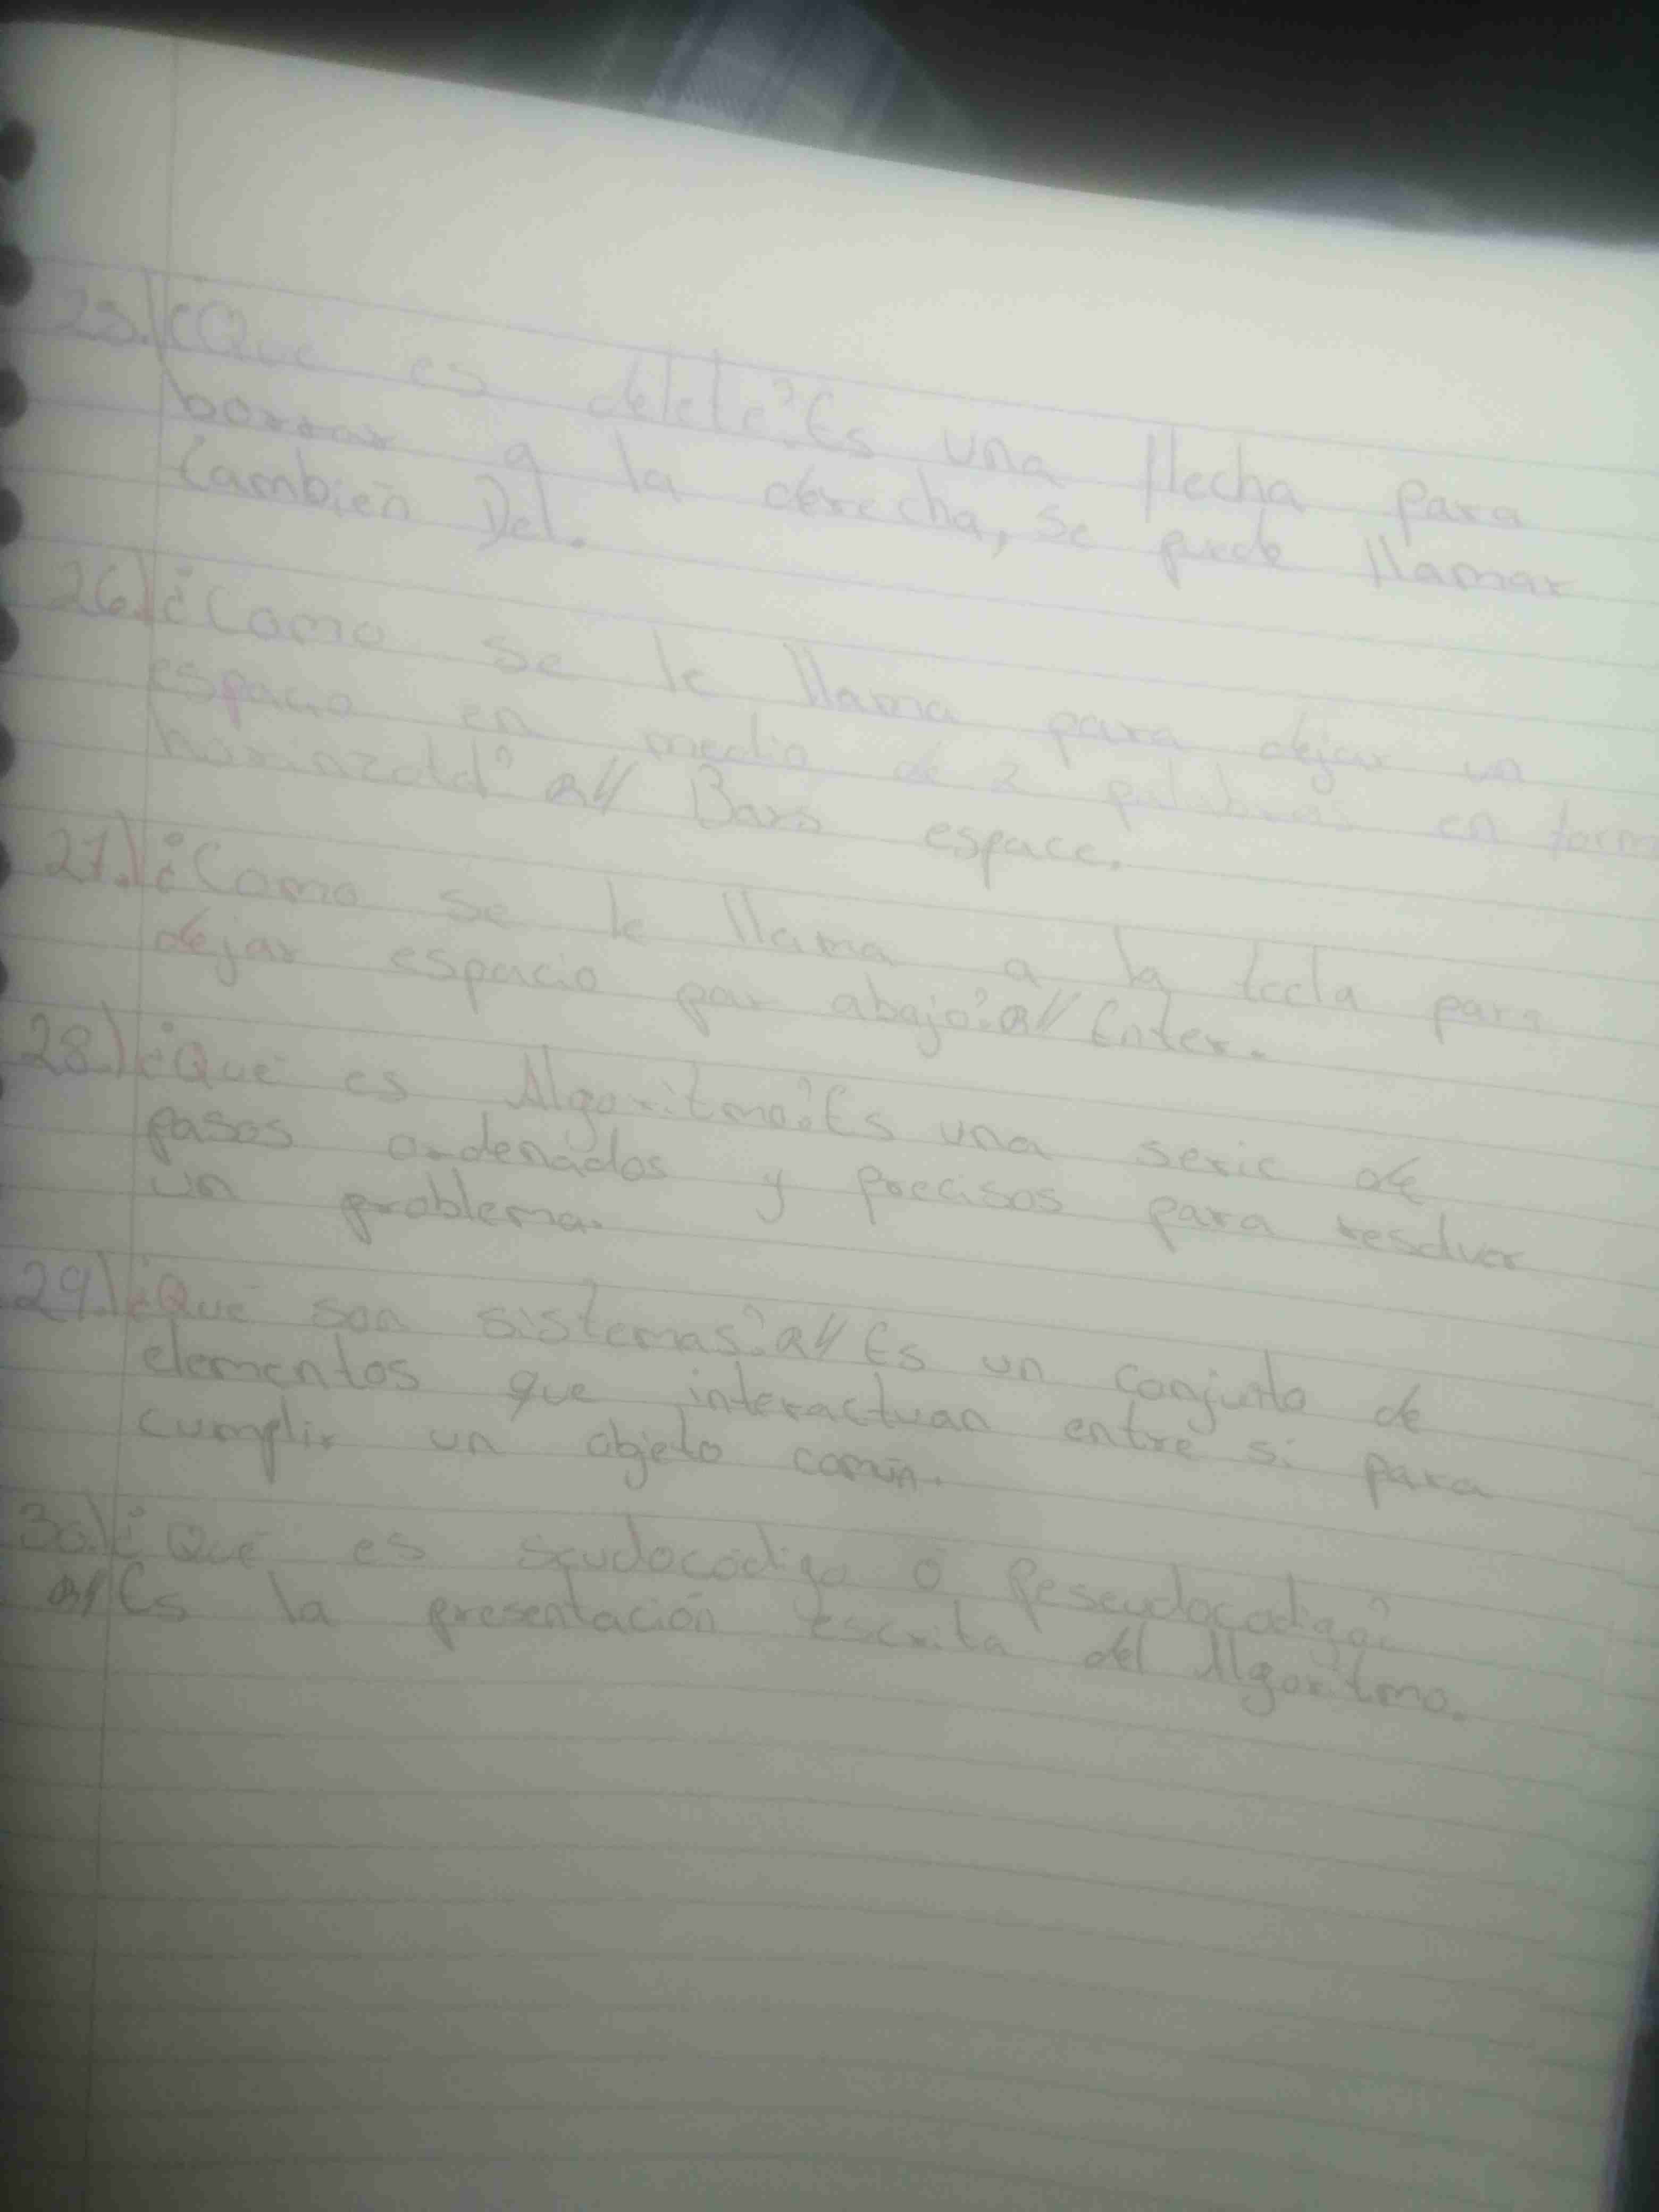 25.) ¿Que es delete? Es una flecha para
borrar a la derecha, se puede llamar
también Del.
26.) ¿Como se le llama para dejar un
espacio en medio de 2 palabras en form
R// Barr espace.
27.) ¿Como se le llama a la tecla para
dejar espacio por abajo? R// Enter.
28.) ¿Qué es Algoritmo? Es una serie de
pasos ordenados y precisos para resolver
un problema.
29.) ¿Qué son sistemas? R// Es un conjunto de
elementos que interactuan entre si para
cumplir un objeto común.
30.) ¿Qué es seudocódigo ó Peseudocodigo?
R// Es la presentación escrita del Algoritmo.